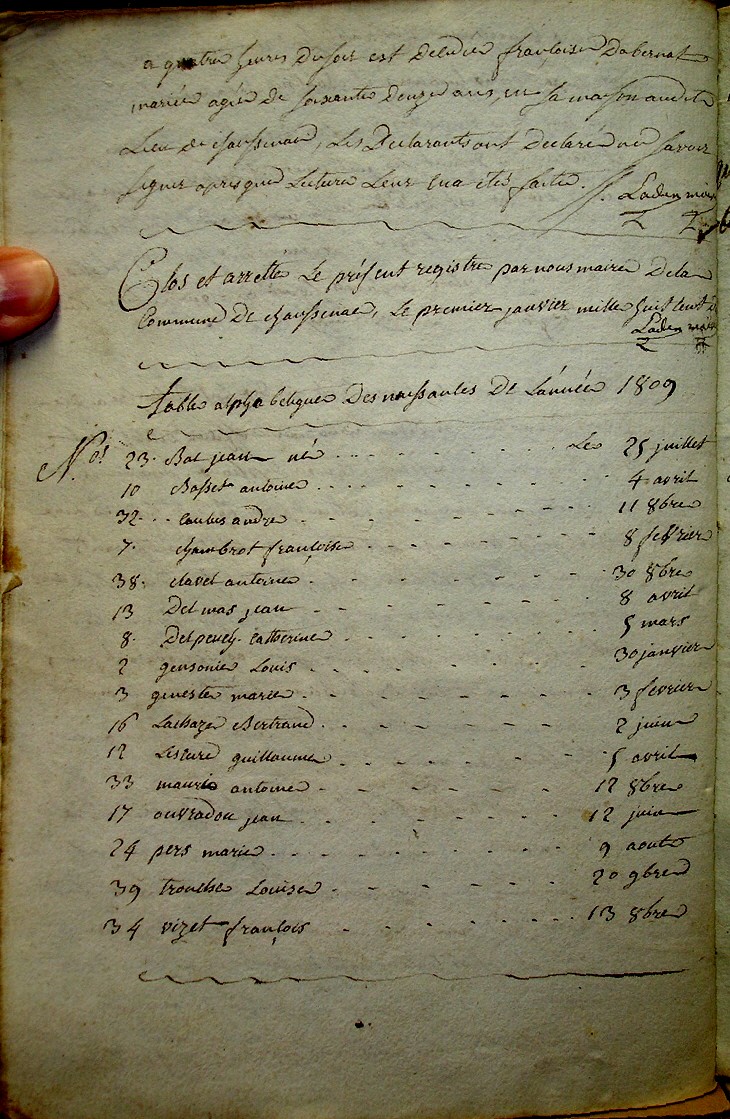 a quatre heures du soir est décédée françoise Dabernat
mariée agée de soixante douze ans, en sa maison audit
Lieu de chaussenac, Les Declarants ont Declaré ne savoir
signer apres que Lecture Leur en a été faite. Laden maire
Clos et arretté Le présent registre par nous maire De la
Commune De chaussenac, Le premier janvier mille huit cent
Laden maire
table alphabetique Des naissances De L'année 1809
Nos 23. Bat jean né Le 25 juillet
10 Basset antoine 4 avril
32 Caubes andre 11 8bre
7. chambrot françoise 8 fevrier
38. clavel antoine 30 8bre
13 Delmas jean 8 avril
8. Delpeuch catherine 5 mars
2 gensonie Louis 30 janvier
3 geneste marie 3 fevrier
16 Lachaze Bertrand 2 juin
12 Lescure guillaume 5 avril
33 maurie antoine 12 8bre
17 ouvradou jean 12 juin
24 pers marie 9 aout
39 trouche Louise 20 9bre
34 vizet françois 13 8bre